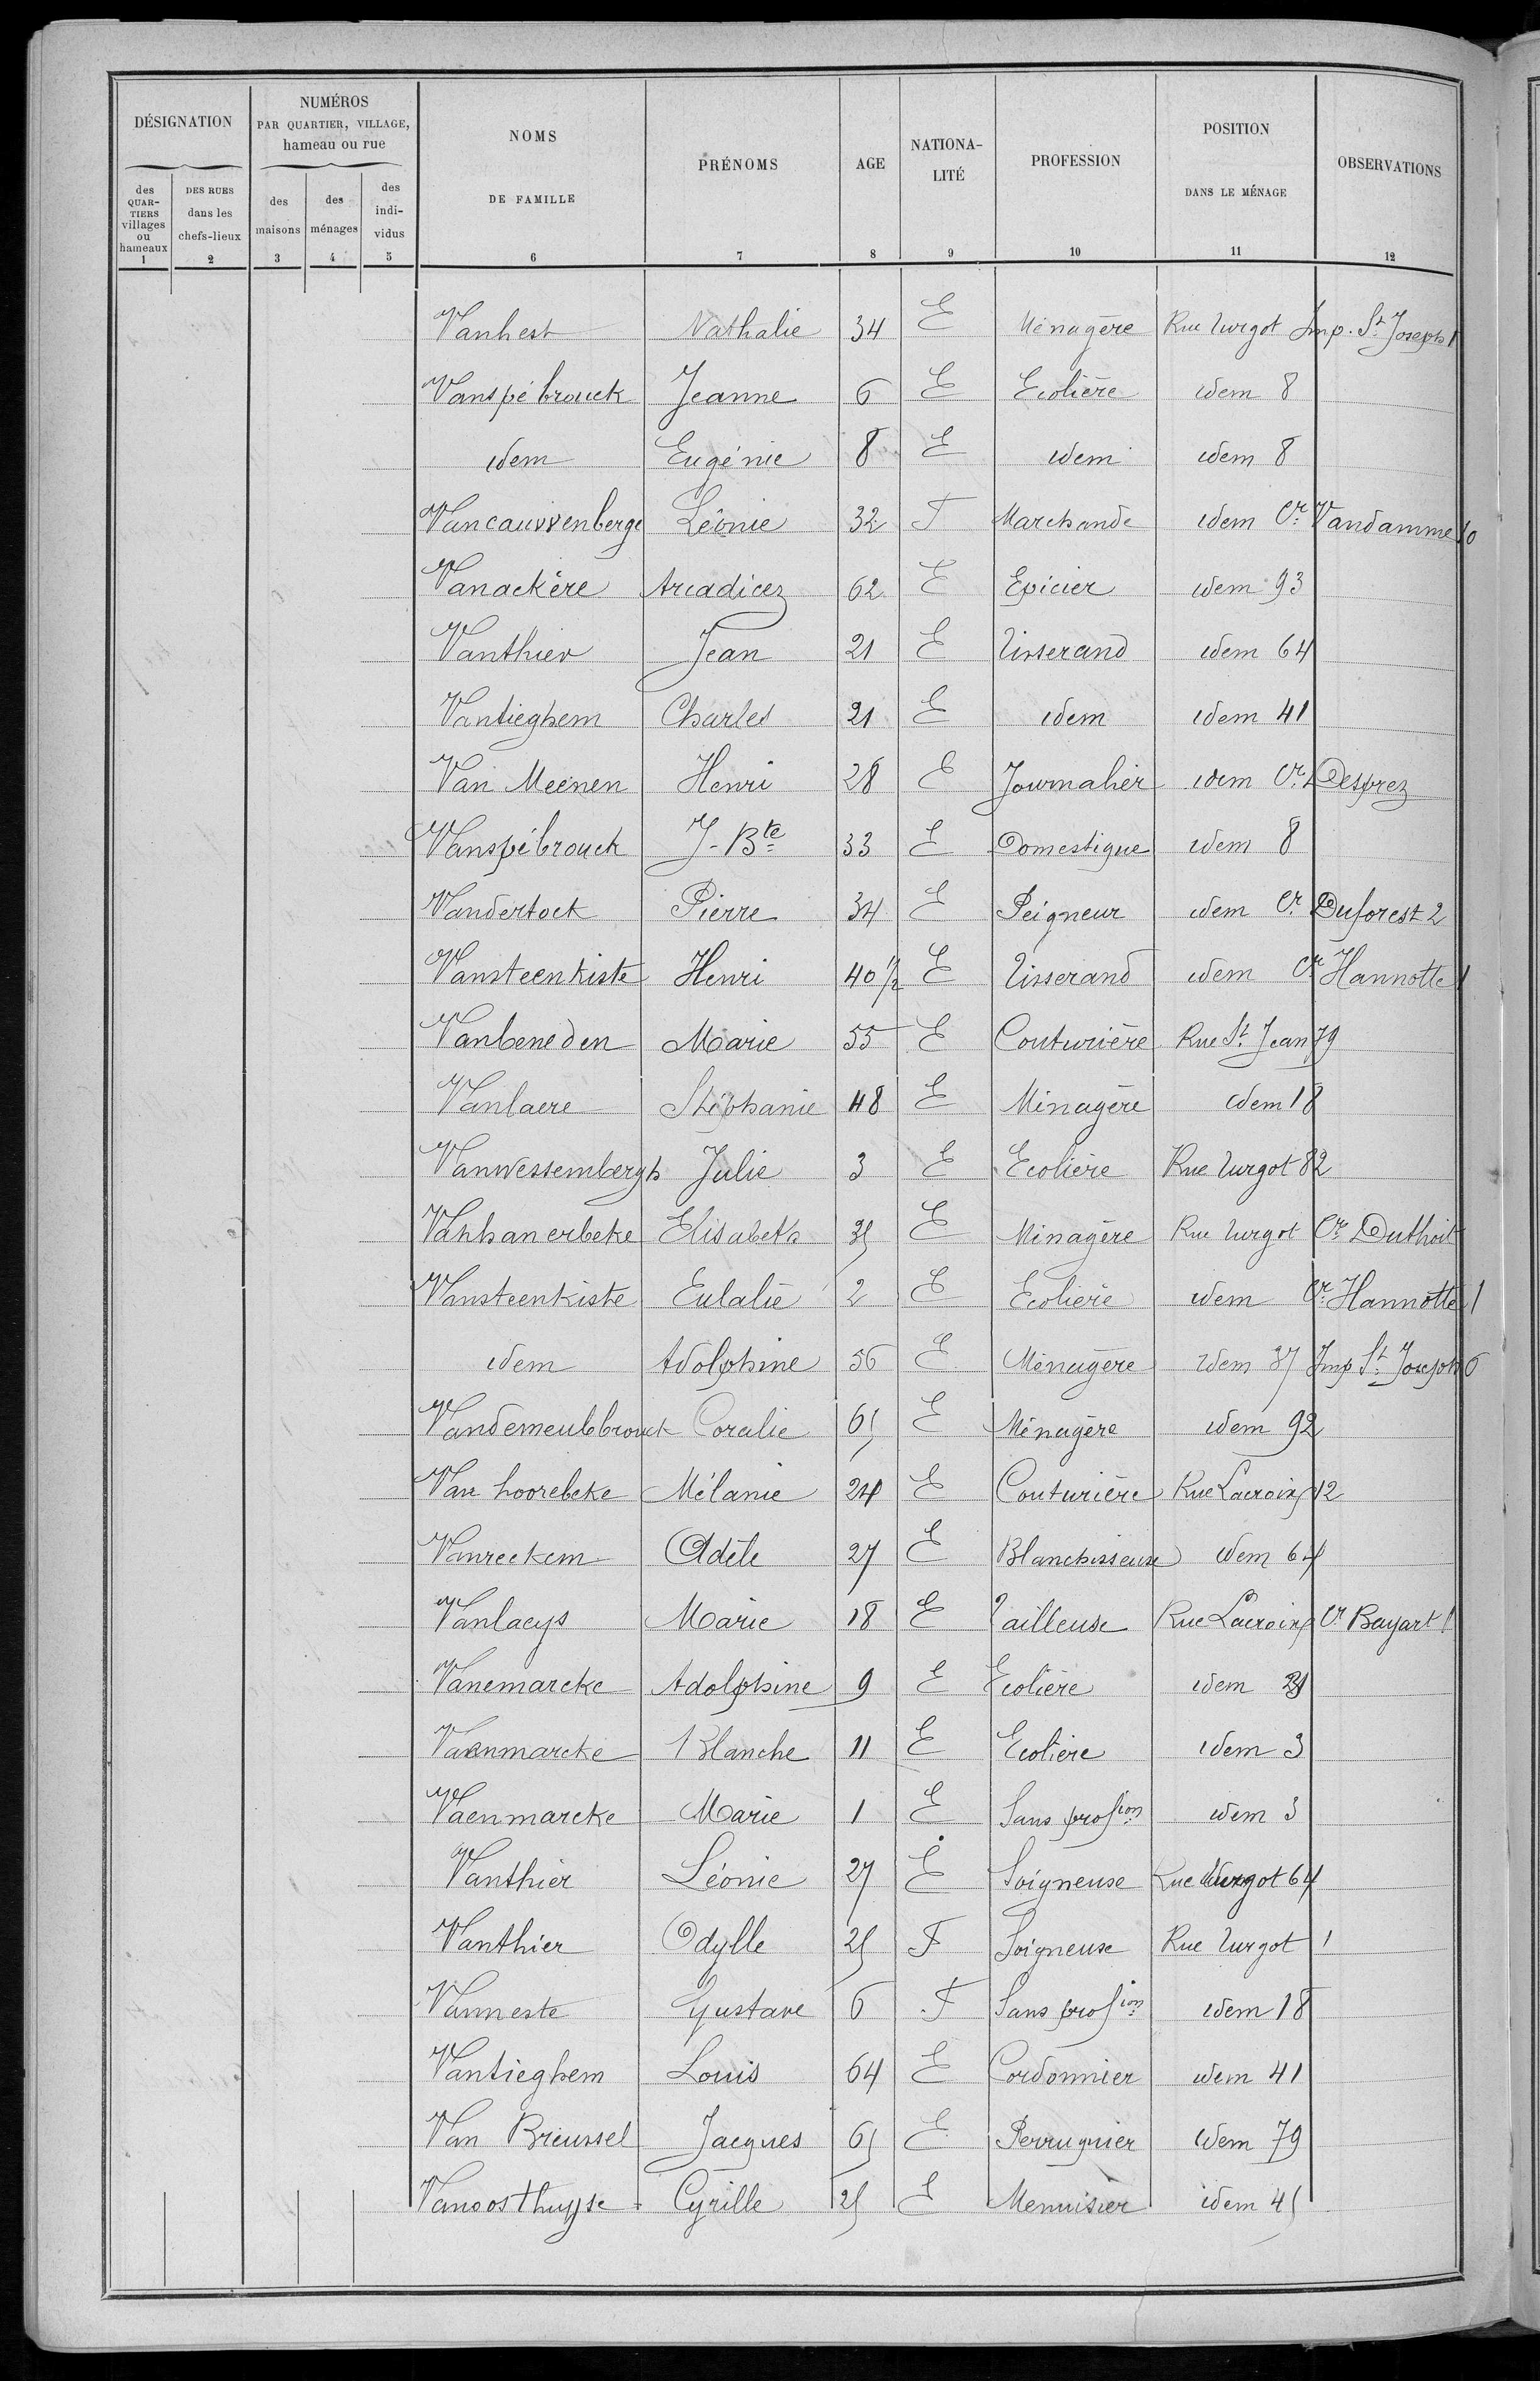 DÉSIGNATION | NUMÉROS PAR QUARTIER, VILLAGE, hameau ou rue | NOMS DE FAMILLE | PRÉNOMS | AGE | NATIONA-LITÉ | PROFESSION | POSITION DANS LE MÉNAGE | OBSERVATIONS
des QUAR-TIERS villages ou hameaux | DES RUES dans les chefs-lieux | des maisons | des ménages | des indi-vidus
1 | 2 | 3 | 4 | 5 | 6 | 7 | 8 | 9 | 10 | 11 | 12
Vanhest | Nathalie | 34 | E | Ménagère | Rue Turgot Imp. St Joseph 1
Vanspébrouck | Jeanne | 6 | E | Ecolière | idem 8
idem | Eugénie | 8 | E | idem | idem 8
Vancauwenberge | Léonie | 32 | F | Marchande | idem Cr Vandamme 10
Vanackère | Arcadiez | 62 | E | Epicier | idem 93
Vanthier | Jean | 21 | E | Tisserand | idem 64
Vantieghem | Charles | 21 | E | idem | idem 41
Van Meenen | Henri | 28 | E | Journalier | idem Cr Desprez
Vanspébrouck | J-Bte | 33 | E | Domestique | idem 8
Vandertock | Pierre | 34 | E | Peigneur | idem Cr Duforest 2
Vansteenkiste | Henri | 40 1/2 | E | Tisserand | idem Cr Hannotte 1
Vanbeneden | Marie | 55 | E | Couturière | Rue St Jean 79
Vanlaere | Stéphanie | 48 | E | Ménagère | idem 18
Vanwessembergh | Julie | 3 | E | Ecolière | Rue Turgot 82
Vanhanerbeke | Elisabeth | 35 | E | Ménagère | Rue Turgot Cr Duthoit
Vansteenkiste | Eulalie | 2 | E | Ecolière | idem Cr Hannotte 1
idem | Adolphine | 56 | E | Ménagère | idem 37 Imp St Joseph 6
Vandemeulebrouck | Coralie | 65 | E | Ménagère | idem 92
Van hoorebeke | Mélanie | 24 | E | Couturière | Rue Lacroix 12
Vanreckem | Adèle | 27 | E | Blanchisseuse | idem 64
Vanlaeys | Marie | 18 | E | Tailleuse | Rue Lacroix Cr Bayart 1
Vanemarcke | Adolphine | 9 | E | Ecolière | idem
Vaenmarcke | Blanche | 11 | E | Ecolière | idem 3
Vaenmarcke | Marie | 1 | E | Sans profion | idem 3
Vanthier | Léonie | 27 | E | Soigneuse | Rue Turgot 64
Vanthier | Odylle | 25 | F | Soigneuse | Rue Turgot 1
Vanneste | Gustave | 6 | F | Sans profion | idem 18
Vantieghem | Louis | 64 | E | Cordonnier | idem 41
Van Breussel | Jacques | 65 | E | Perruquier | idem 79
Vanoosthuyse | Cyrille | 25 | E | Menuisier | idem 45